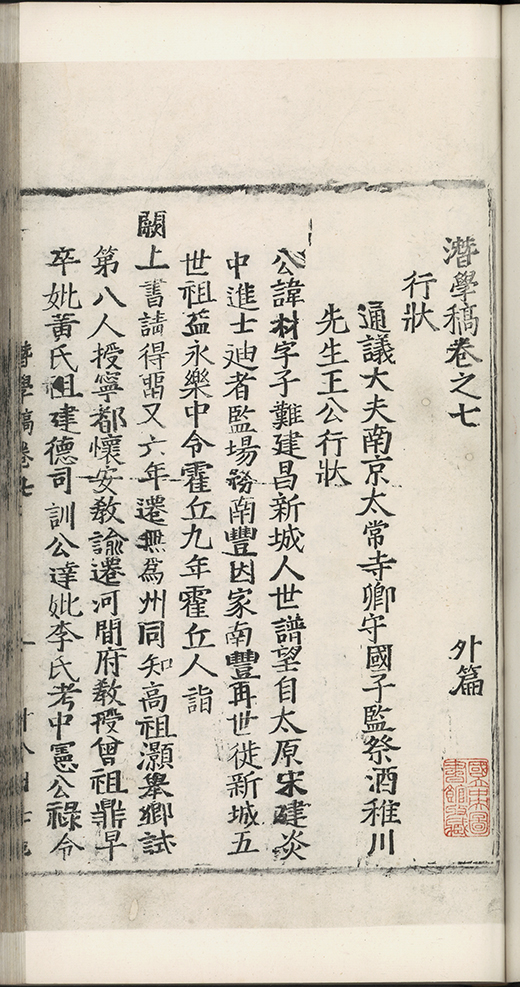 濳學稿卷之七　外篇
行狀
通議大夫南京太常寺卿守國子監祭酒稚川
先生王公行狀
公諱材字子難建昌新城人世譜望自太原宋建炎
中進士迪者監場務南豐因家南豐再世徙新城五
世祖葢永樂中令霍丘九年霍丘人詣
闕上書請得畱又六年遷無為州同知高祖灝舉鄉試
第八人授寧都懷安教諭遷河間府教授曾祖鼎早
卒妣黃氏祖建德司訓公達妣李氏考中憲公祿令
濳學稿卷七
國立北平圖
書館收藏